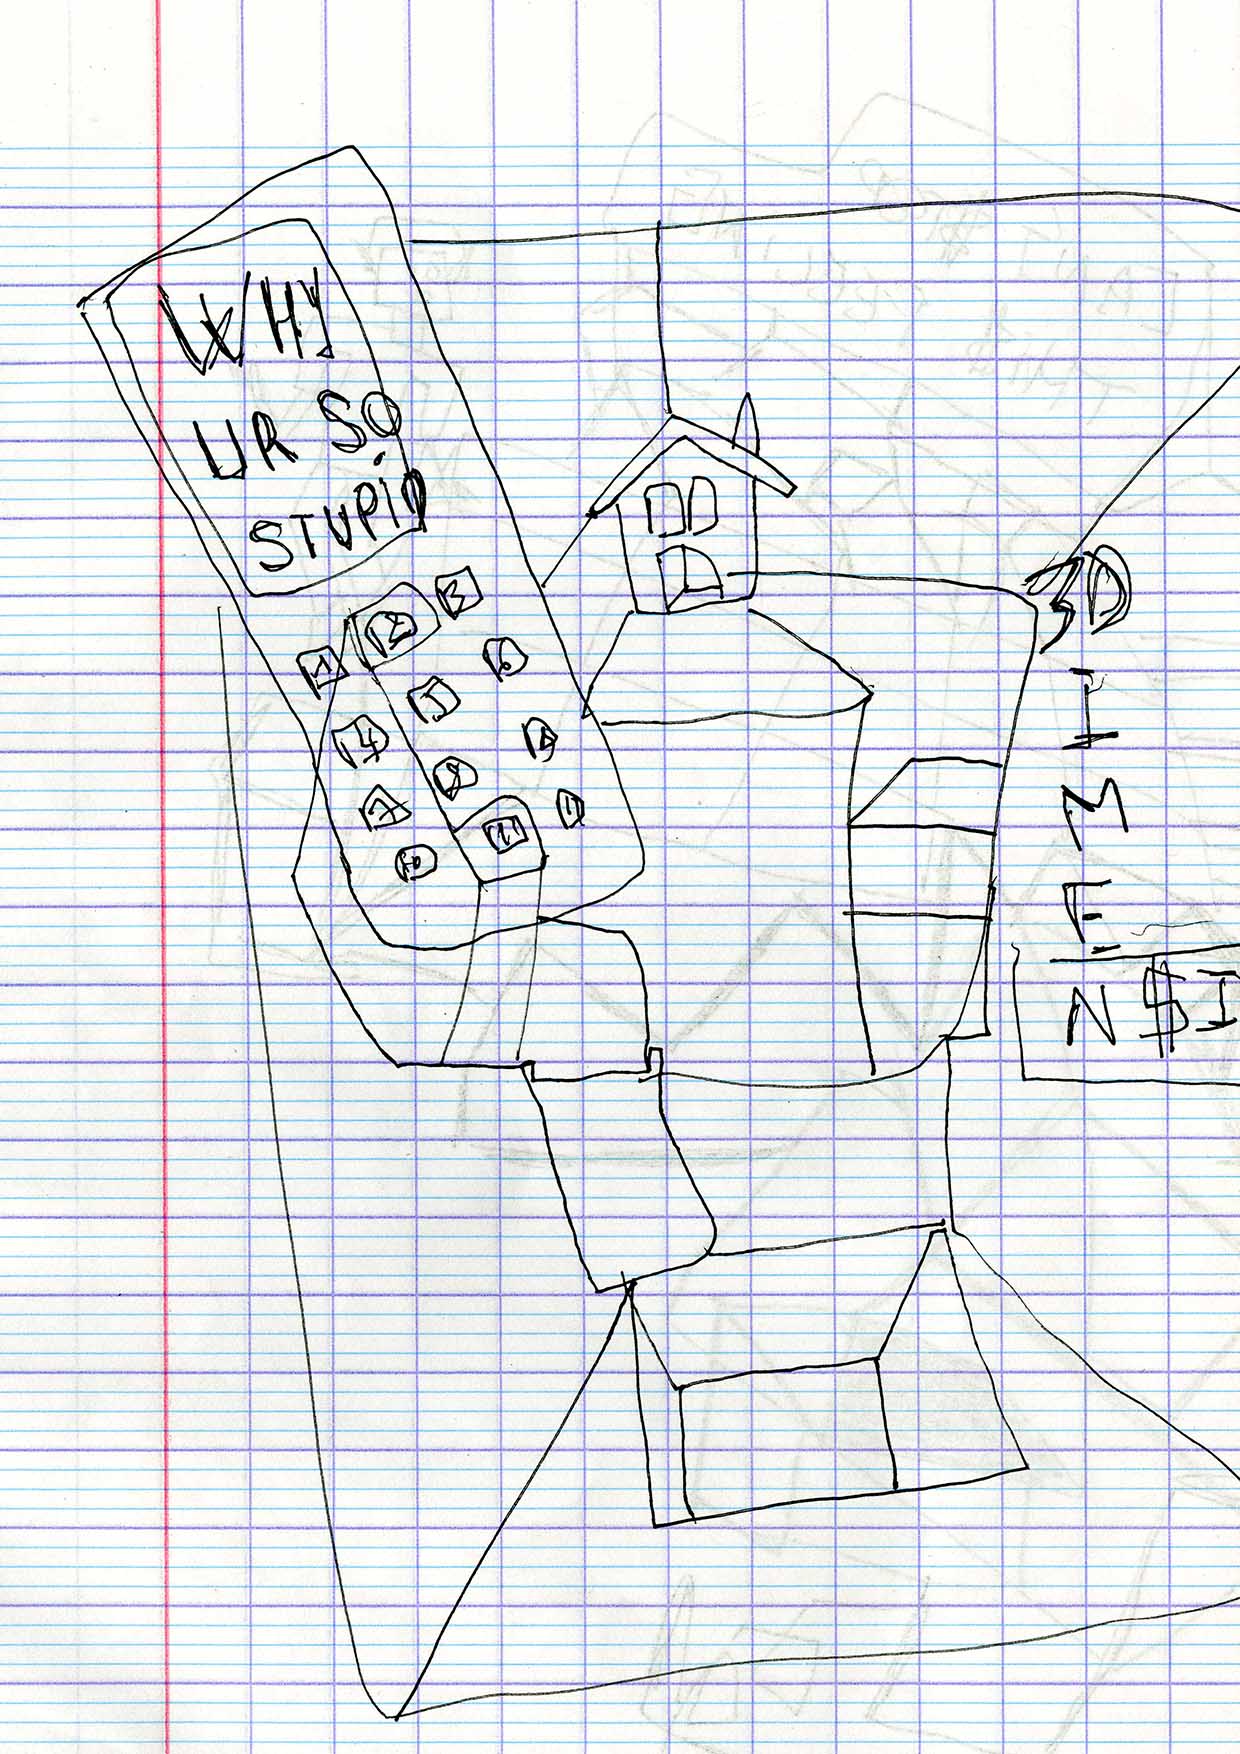 WHY
UR SO
STUPID
1 2 3
4 5 6
7
10 11
3D
I
M
E
N $I